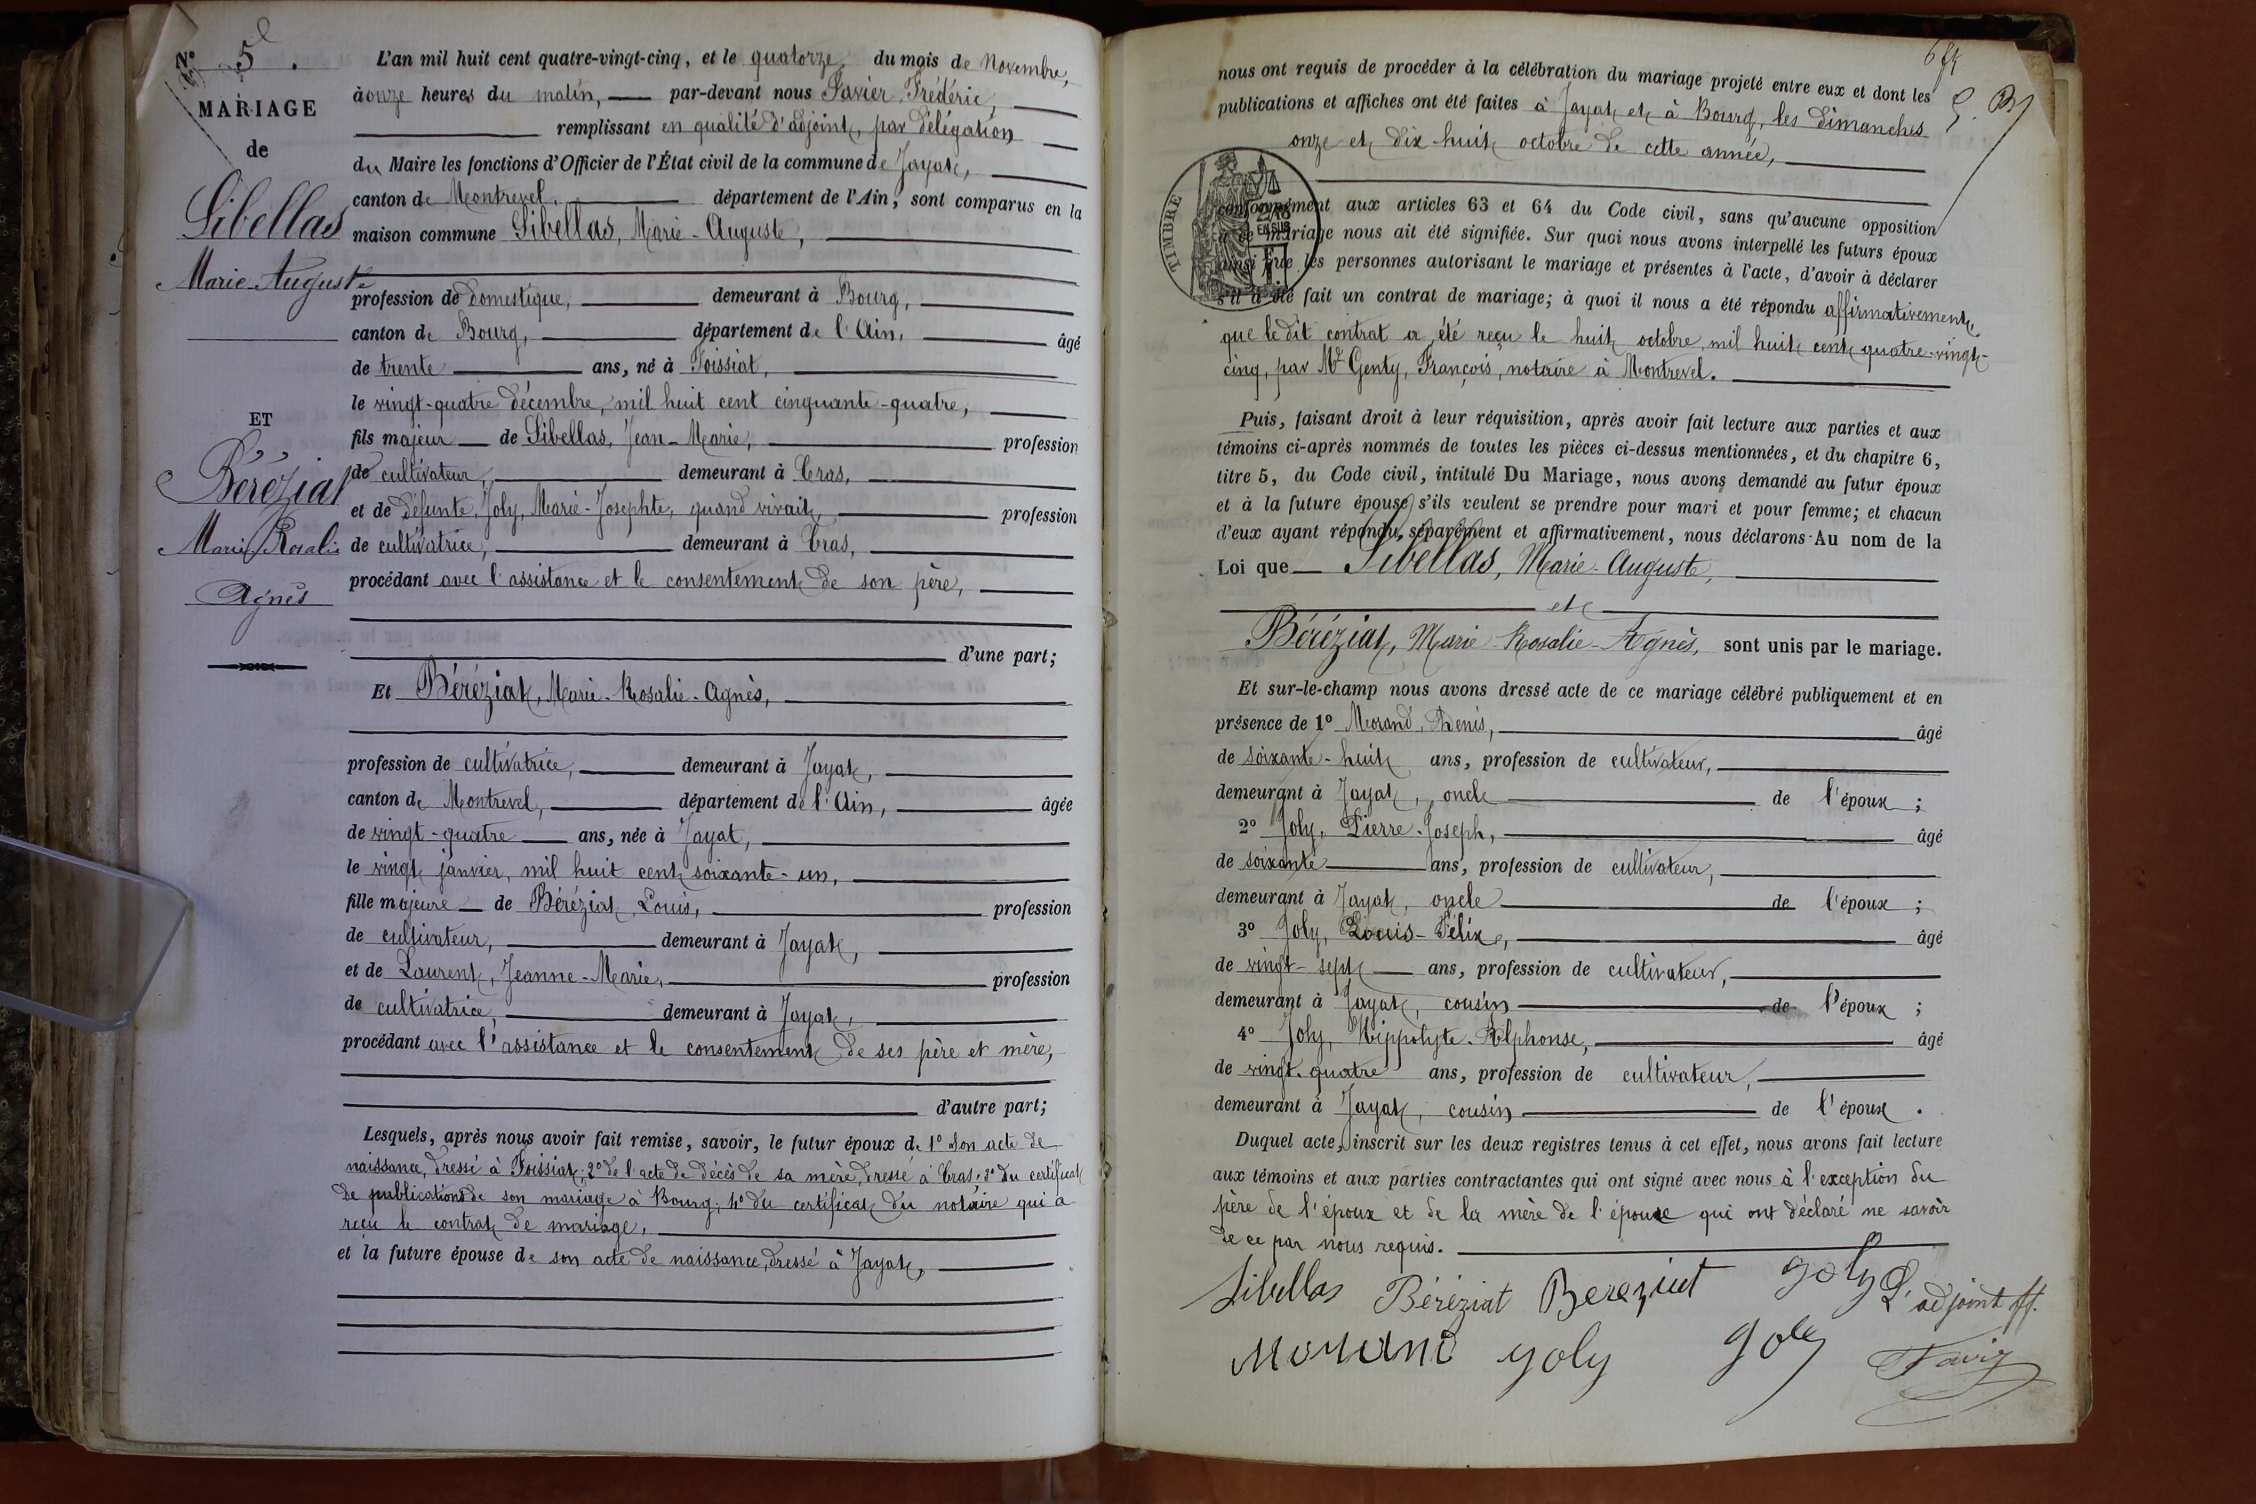 N° 5e.
MARIAGE
de
Sibellas
Marie-Auguste
ET
Béréziat
Marie Rosalie
Agnès
L'an mil huit cent quatre-vingt-cinq, et le quatorze du mois de Novembre,
à onze heures du matin, par-devant nous Savier, Frédéric,
remplissant en qualité d'adjoint, par délégation
du Maire les fonctions d'Officier de l'État civil de la commune de Jayat,
canton de Montrevel, département de l'Ain, sont comparus en la
maison commune Sibellas, Marie-Auguste,
profession de Domestique, demeurant à Bourg,
canton de Bourg, département de l'Ain, âgé
de trente ans, né à Foissiat,
le vingt-quatre décembre, mil huit cent cinquante-quatre,
fils majeur de Sibellas, Jean-Marie, profession
de cultivateur, demeurant à Cras,
et de défunte, Joly, Marie-Josephte, quand vivait, profession
de cultivatrice, demeurant à Cras,
procédant avec l'assistance et le consentement de son père,
d'une part;
Et Béréziat, Marie-Rosalie-Agnès,
profession de cultivatrice, demeurant à Jayat,
canton de Montrevel, département de l'Ain, âgée
de vingt-quatre ans, née à Jayat,
le vingt janvier, mil huit cent soixante-un,
fille majeure de Béréziat, Louis, profession
de cultivateur, demeurant à Jayat,
et de Laurent, Jeanne-Marie, profession
de cultivatrice, demeurant à Jayat,
procédant avec l'assistance et le consentement de ses père et mère,
d'autre part;
Lesquels, après nous avoir fait remise, savoir, le futur époux de 1° son acte de
naissance, dressé à Foissiat; 2° de l'acte de décès de sa mère, dressé à Cras; 3° du certificat
de publications de son mariage à Bourg; 4° du certificat du notaire qui a
reçu le contrat de mariage,
et la future épouse de son acte de naissance, dressé à Jayat,
nous ont requis de procéder à la célébration du mariage projeté entre eux et dont les
publications et affiches ont été faites à Jayat et à Bourg, les dimanches
onze et dix-huit octobre de cette année,
TIMBRE
conformément aux articles 63 et 64 du Code civil, sans qu'aucune opposition
à ce mariage nous ait été signifiée. Sur quoi nous avons interpellé les futurs époux
ainsi que les personnes autorisant le mariage et présentes à l'acte, d'avoir à déclarer
s'il a été fait un contrat de mariage; à quoi il nous a été répondu affirmativement,
que le dit contrat a été reçu le huit octobre, mil huit cent quatre-vingt-
cinq, par Me Genty, François, notaire à Montrevel.
Puis, faisant droit à leur réquisition, après avoir fait lecture aux parties et aux
témoins ci-après nommés de toutes les pièces ci-dessus mentionnées, et du chapitre 6,
titre 5, du Code civil, intitulé Du Mariage, nous avons demandé au futur époux
et à la future épouse s'ils veulent se prendre pour mari et pour femme; et chacun
d'eux ayant répondu séparément et affirmativement, nous déclarons Au nom de la
Loi que Sibellas, Marie-Auguste,
et
Béréziat, Marie-Rosalie-Agnès, sont unis par le mariage.
Et sur-le-champ nous avons dressé acte de ce mariage célébré publiquement et en
présence de 1° Morand, Denis, âgé
de soixante-huit ans, profession de cultivateur,
demeurant à Jayat, oncle de l'époux;
2° Joly, Pierre-Joseph, âgé
de soixante ans, profession de cultivateur,
demeurant à Jayat, oncle de l'époux;
3° Joly, Louis-Félix, âgé
de vingt-sept ans, profession de cultivateur,
demeurant à Jayat, cousin de l'époux;
4° Joly, Hippolyte-Alphonse, âgé
de vingt-quatre ans, profession de cultivateur,
demeurant à Jayat, cousin de l'époux.
Duquel acte, inscrit sur les deux registres tenus à cet effet, nous avons fait lecture
aux témoins et aux parties contractantes qui ont signé avec nous à l'exception du
père de l'époux et de la mère de l'épouse qui ont déclaré ne savoir
de ce par nous requis.
Sibellas Béréziat Bereziat Joly L'adjoint ff.
Morand Joly Joly